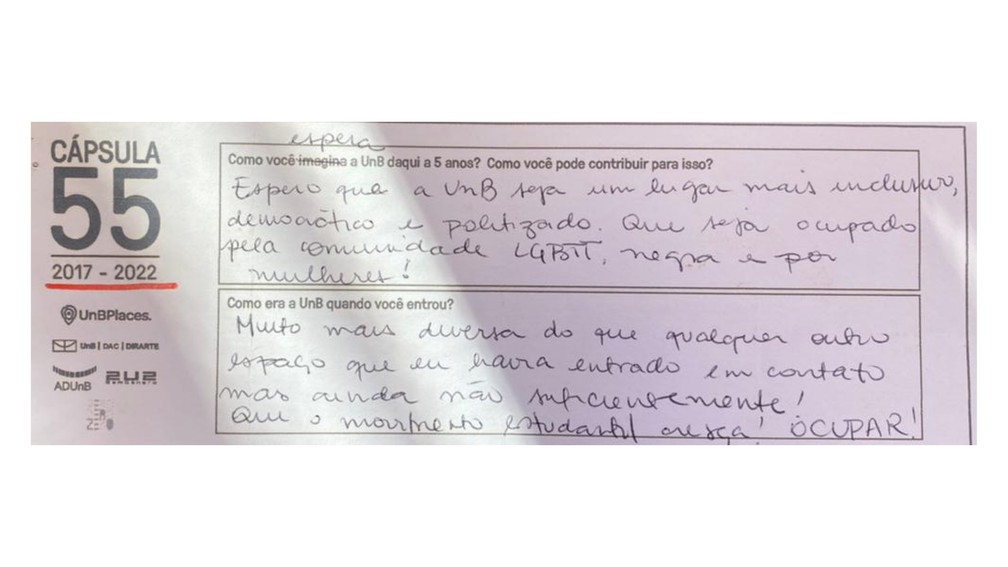 CÁPSULA
55
2017 - 2022
UnBPlaces.
UnB | DAC | DIRARTE
ADUnB
espera
Como você imagina a UnB daqui a 5 anos? Como você pode contribuir para isso?
Espero que a UnB seja um lugar mais inclusivo,
democrático e politizado. Que seja ocupado
pela comunidade LGBTT, negra e por
mulheres!
Como era a UnB quando você entrou?
Muito mais diversa do que qualquer outro
espaço que eu havia entrado em contato
mas ainda não suficientemente!
Que o movimento estudantil cresça! OCUPAR!